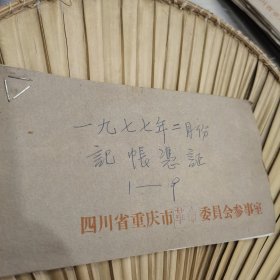 一九七七年二月份
記帳憑証
1—9
四川省重庆市革命委员会参事室